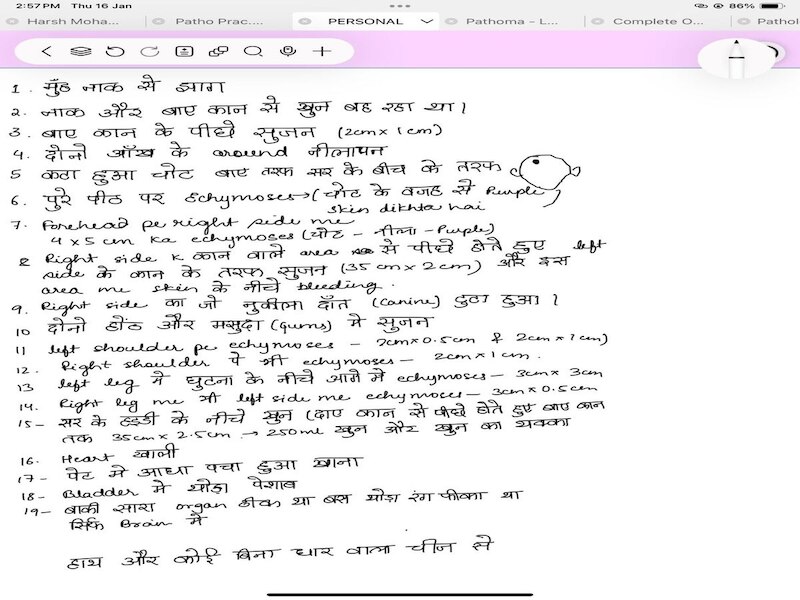 2:57 PM Thu 16 Jan 86%
Harsh Moha... Patho Prac.... PERSONAL Pathoma - L... Complete O... Pathol
1. मुँह नाक से झाग
2. नाक और बाए कान से खुन बह रहा था।
3. बाए कान के पीछे सुजन (2cm x 1cm)
4. दोनो आँख के around नीलापन
5 कटा हुआ चोट बाए तरफ सर के बीच के तरफ
6. पुरे पीठ पर Echymoses → (चोट के वजह से Purple
skin dikhta hai)
7. Forehead pe right side me
4 x 5 cm ka echymoses (चोट - नीला - Purple)
8 Right side k कान वाले area से पीछे होते हुए left
side के कान के तरफ सुजन (35 cm x 2cm) और इस
area me skin के नीचे bleeding.
9. Right side का जो नुकीला दाँत (canine) टुटा हुआ।
10 दोनो होंठ और मसुदा (Gums) मे सुजन
11 left shoulder pe echymoses - 7cm x 0.5cm & 2cm x 1cm)
12. Right shoulder पे भी echymoses - 2cm x 1cm.
13 left leg मे घुटना के नीचे आगे मे echymoses - 3cm x 3cm
14. Right leg me भी left side me echymoses - 3cm x 0.5cm
15- सर के हड्डी के नीचे खुन (दाए कान से पीछे होते हुए बाए कान
तक 35cm x 2.5cm → 250ml खुन और खुन का थक्का
16. Heart खाली
17- पेट मे आधा पचा हुआ खाना
18- Bladder मे थोड़ा पेशाब
19- बाकी सारा organ ठीक था बस थोड़ा रंग फीका था
सिर्फ Brain मे
हाथ और कोई बिना धार वाला चीज से